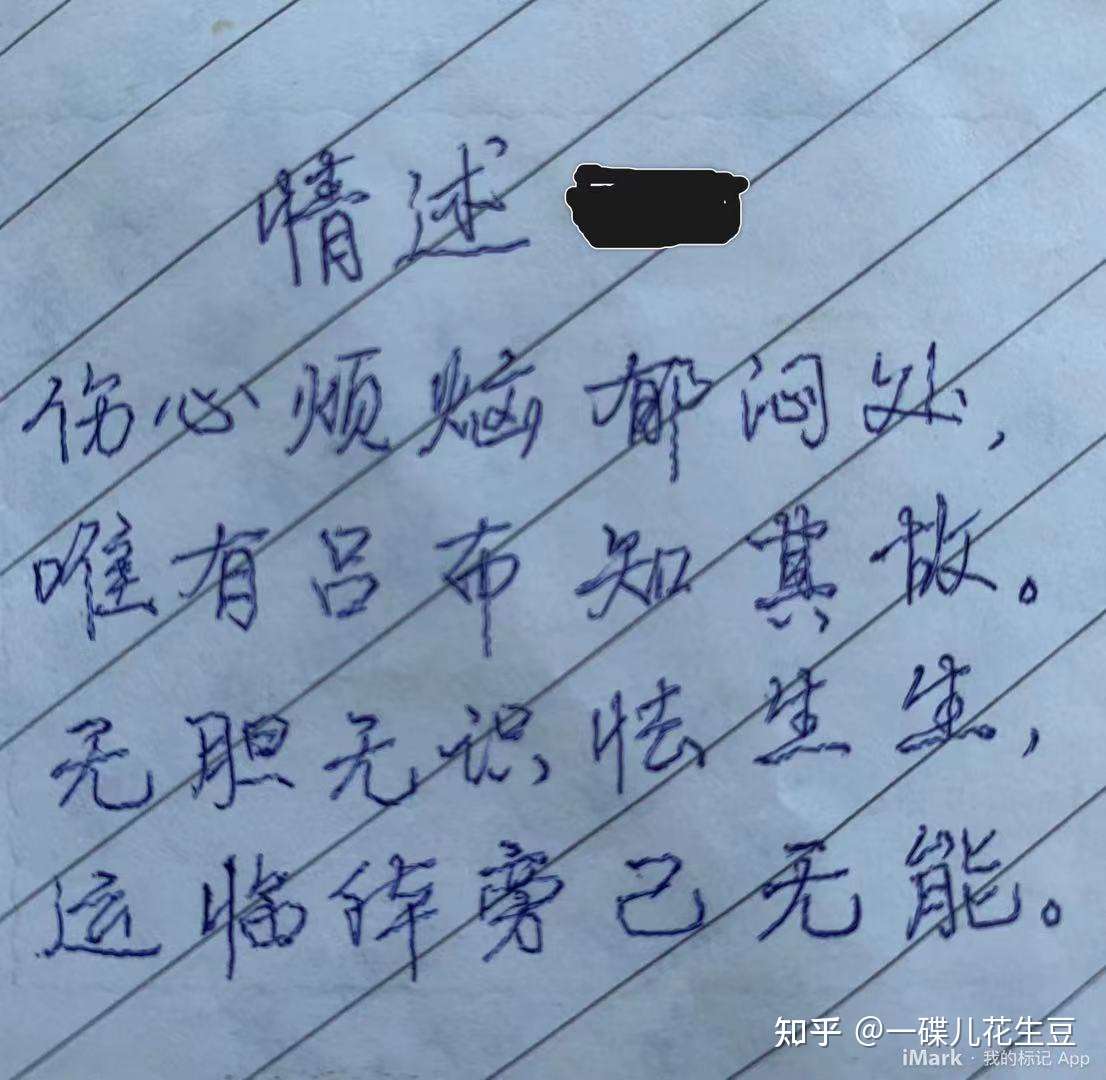 情述
伤心烦恼郁闷处，
唯有吕布知其故。
无胆无识怯生生，
运临体旁己无能。
知乎 @一碟儿花生豆
iMark · 我的标记 App